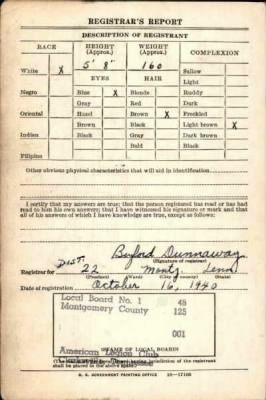 REGISTRAR'S REPORT
DESCRIPTION OF REGISTRANT
RACE HEIGHT (Approx.) WEIGHT (Approx.) COMPLEXION
5' 8" 160
White X Sallow
EYES HAIR Light
Negro Blue X Blonde Ruddy
Gray Red Dark
Oriental Hazel Brown X Freckled
Brown Black Light brown X
Indian Black Gray Dark brown
Bald Black
Filipino
Other obvious physical characteristics that will aid in identification
I certify that my answers are true; that the person registered has read or has
had read to him his own answers; that I have witnessed his signature or mark and that
all of his answers of which I have knowledge are true, except as follows:
Buford Dunnaway
(Signature of registrar)
Registrar for Dist. 22 Montg. Tenn
(Precinct) (Ward) (City or county) (State)
Date of registration October 16, 1940
Local Board No. 1 48
Montgomery County 125
001
American Legion Club
(STAMP OF LOCAL BOARD)
shall be placed in the above space.)
U. S. GOVERNMENT PRINTING OFFICE 16—17105